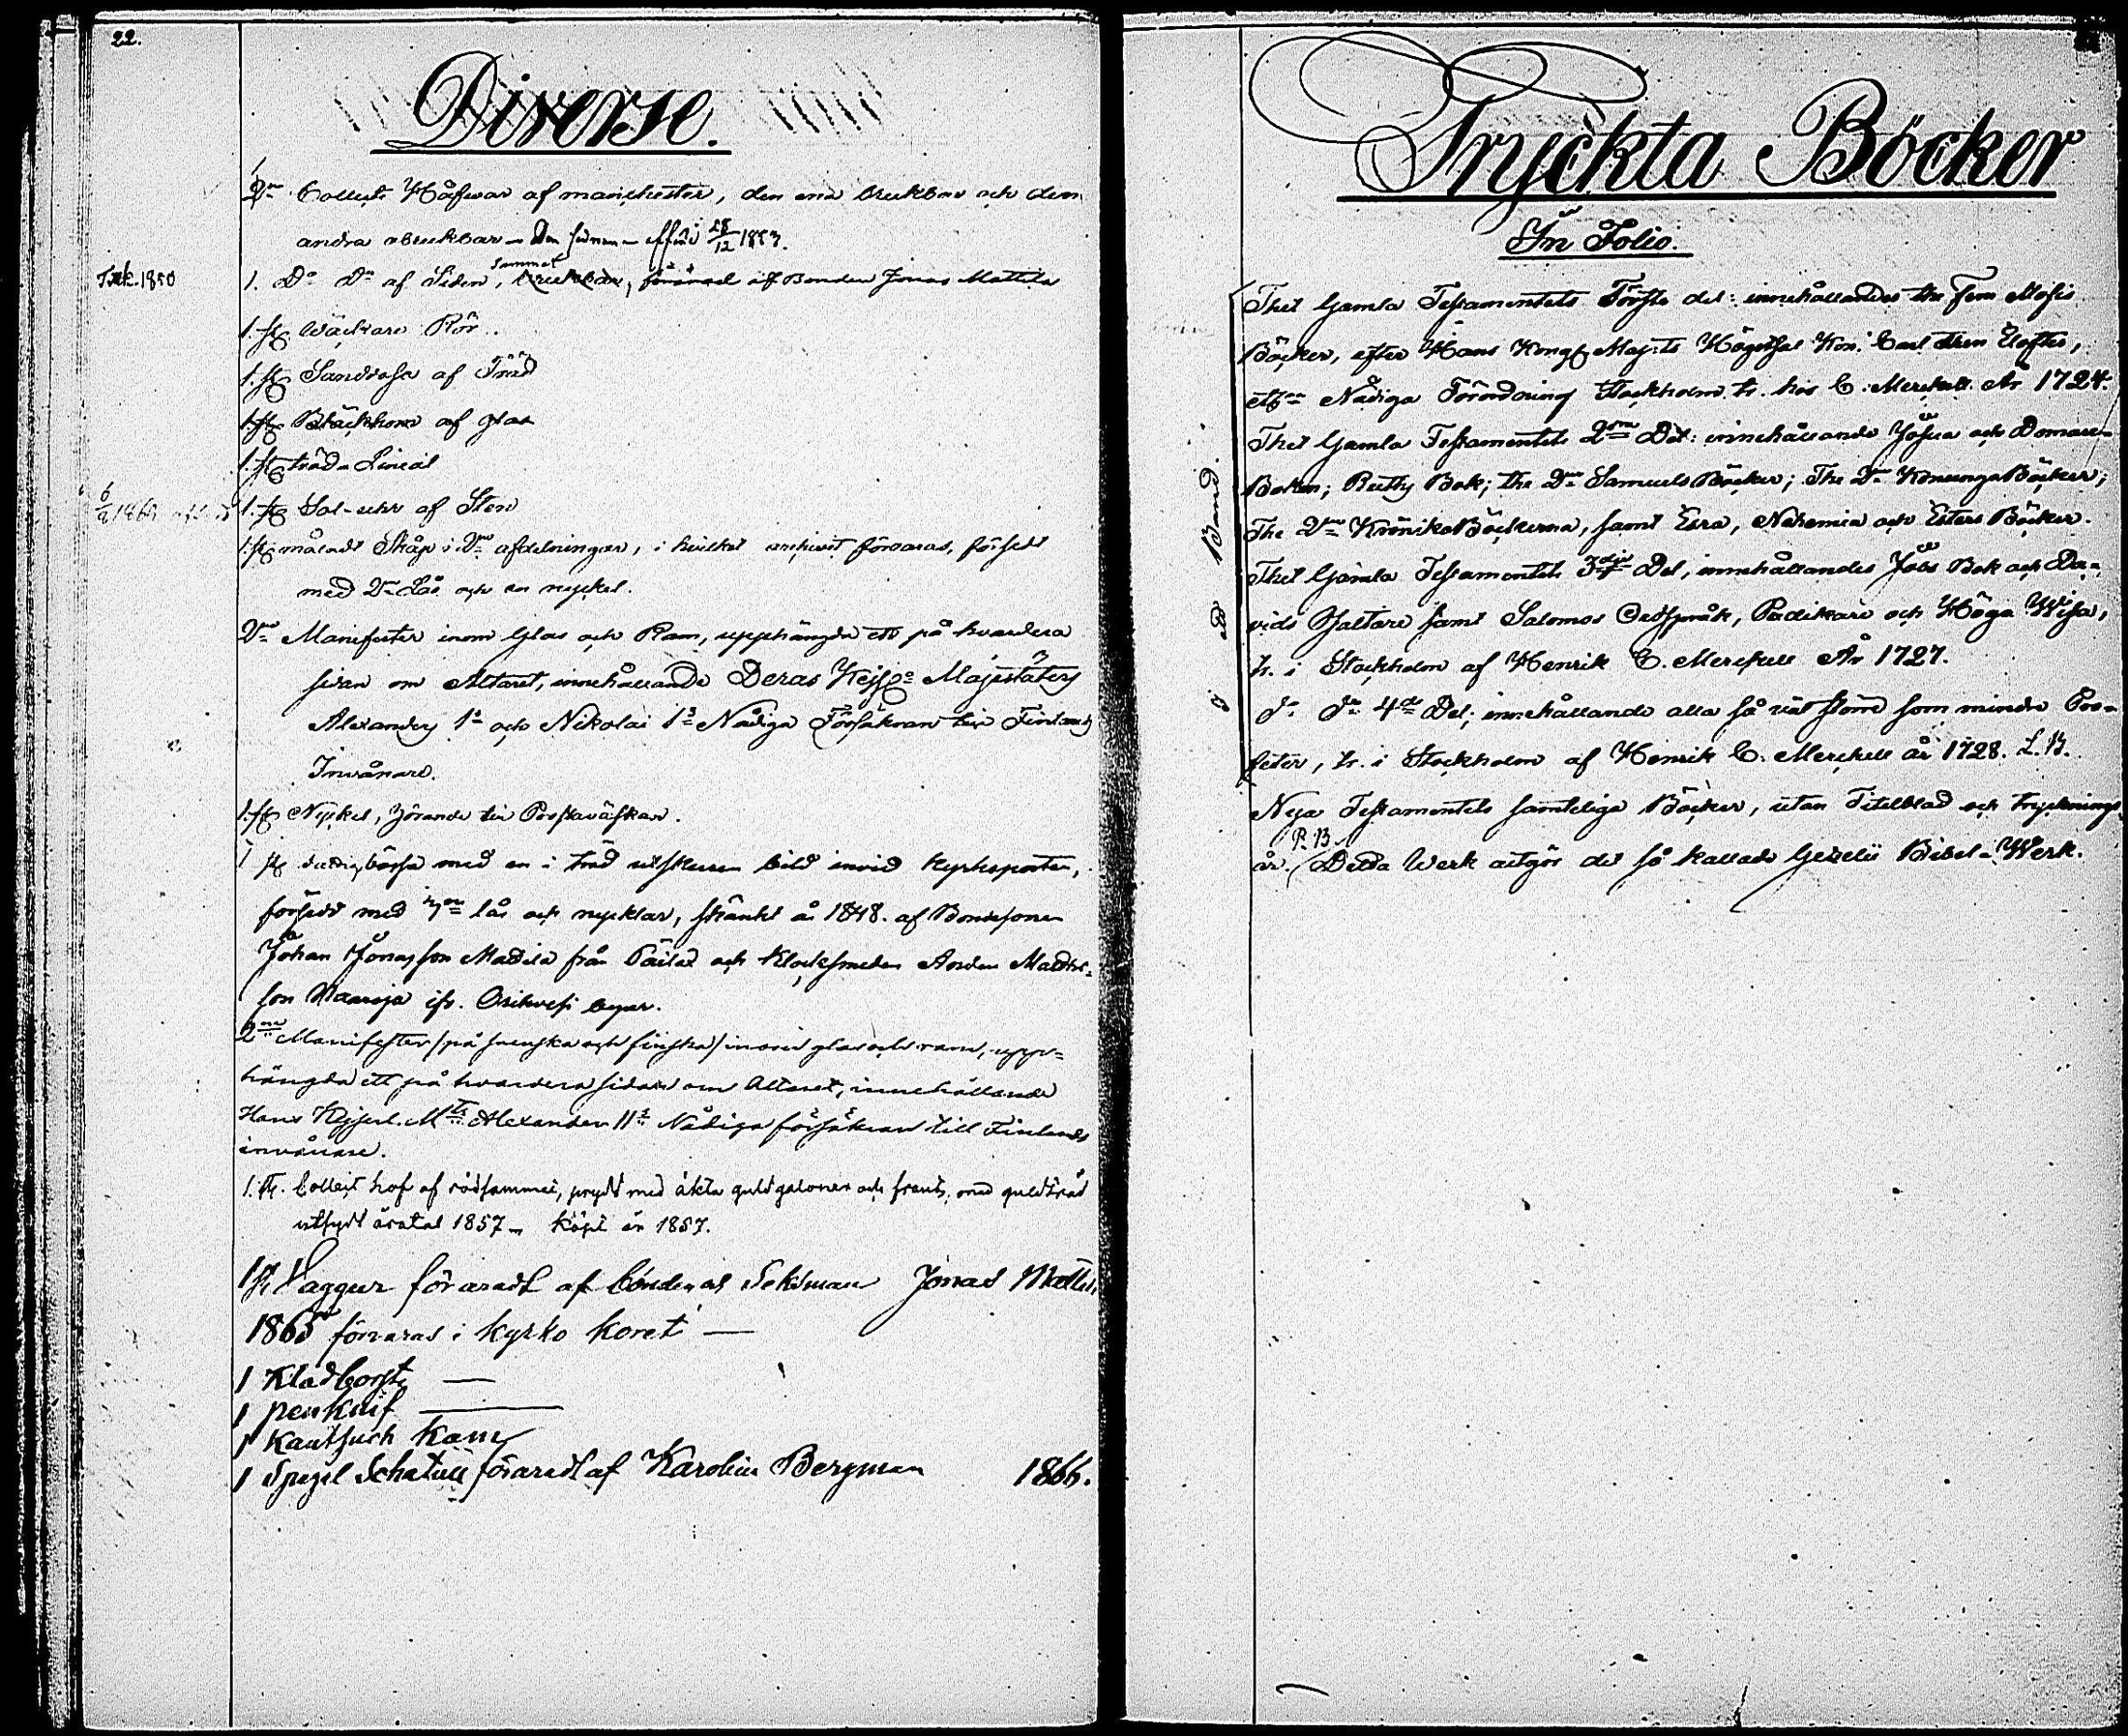 22.
Diverse.
2ne Collect Håfwar af manchester, den ena brukbar och den
andra obrukbar – den sednare 28/12 1853.
1. Do Do af Siden, brukbar, förärad af Bonden Jonas Mattila
Sammet
Febr. 1850
1. st. Wäckare Rör.
1. st. Sandosa af Träd
1. st. Bläckhorn af glas
1. st. träd-Lineal
1. st. Sol-uhr af Sten
6/2 1864
1. st. måladt Skåp i 2ne afdelningar, i hvilket archivet förvaras, försedt
med 2ne Lås och en nyckel.
2ne Manifester inom Glas och Ram, upphängda ett på hvardera
sidan om Altaret, innehållande Deras Kejs. Majestäters
Alexanders 1s och Nikolai 1s Nådiga Försäkran till Finlands
Invånare.
1. st. Nyckel, hörande till Postaväskan.
1 st. fattigbössa med en i träd utskuren bild invid kyrkoporten,
försedd med lås och nycklar, skänkt år 1848. af Bondesonen
Johan Jonasson Madila från och Klocksmeden Anders Matts-
son ifr. Osikvesi byar.
2ne Manifester /på svenska och finska/ inom glas och ram, upp=
hängda ett på hvardera sidan om Altaret, innehållande
Hans Kejserl. Mts Alexander IIs Nådiga försäkran till Finlands
invånare.
1. st. Collect hof af röd sammet, prydt med äkta guldgaloner och frans, med guldtråd
utsydt åratal 1857 – köpt år 1857.
1 st Vaggur föräradt af bonden och Seksman Jonas Mattila
1865 förvaras i kyrko koret —
1 Kladborste —
1 penknif —
1 Kautsuck Kam
1 Spegel Schatull föräradt af Karolina Bergman 1866.
Tryckta Böcker
In Folio.
Thet Gamla Testamentets Förste del: innehållandes the Fem Mosis
Böcker, efter Hans Kongl. Maj:ts Högstsal. Kon. Carl then Eloftes,
Nådiga Förordning Stockholm tr. hos C. Merckell. År 1724.
Thet Gamla Testamentets 2dra Del: innehållande Josua och Domare-
Boken; Ruths Bok; the 2ne Samuels Böcker; The 2ne Konunga Böcker;
The 2ne KrönikeBöckerna, samt Esra, Nehemia och Esters Böcker.
Thet Gamla Testamentets 3dje Del, innehållandes Jobs Bok och Da-
vids Psaltare samt Salomos Ordspråk, Predikare och Höga Wisa,
tr. i Stockholm af Henrik C. Merckell År 1727.
do do 4de Del; innehållande alla så väl större som mindre Pro-
feter, tr. i Stockholm af Henrik C. Merckell år 1728. L. B.
i ett Band.
Nya Testamentets samteliga Böcker, utan Titelblad och trycknings
P. B
år. Detta Werk utgör det så kallade Gezelii Bibel-Werk.